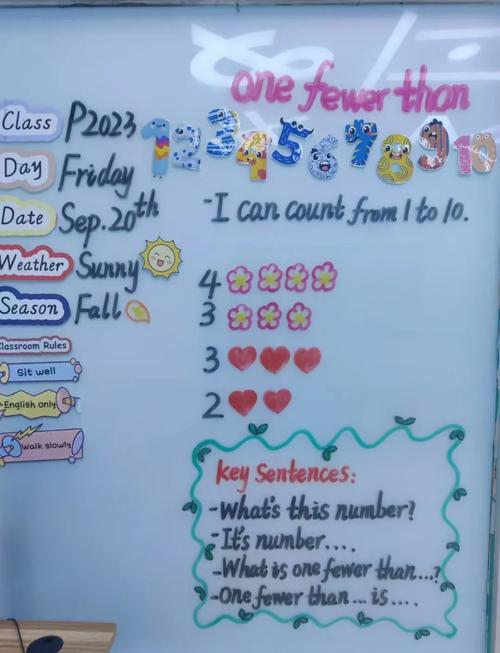 one fewer than
Class P2023
1 2 3 4 5 6 7 8 9 10
Day Friday
Date Sep. 20th
-I can count from 1 to 10.
Weather Sunny
Season Fall
4
3
Classroom Rules
Sit well
English only
Walk slowly
3
2
key Sentences:
-What's this number?
-It's number....
-What is one fewer than...?
-One fewer than ... is ....